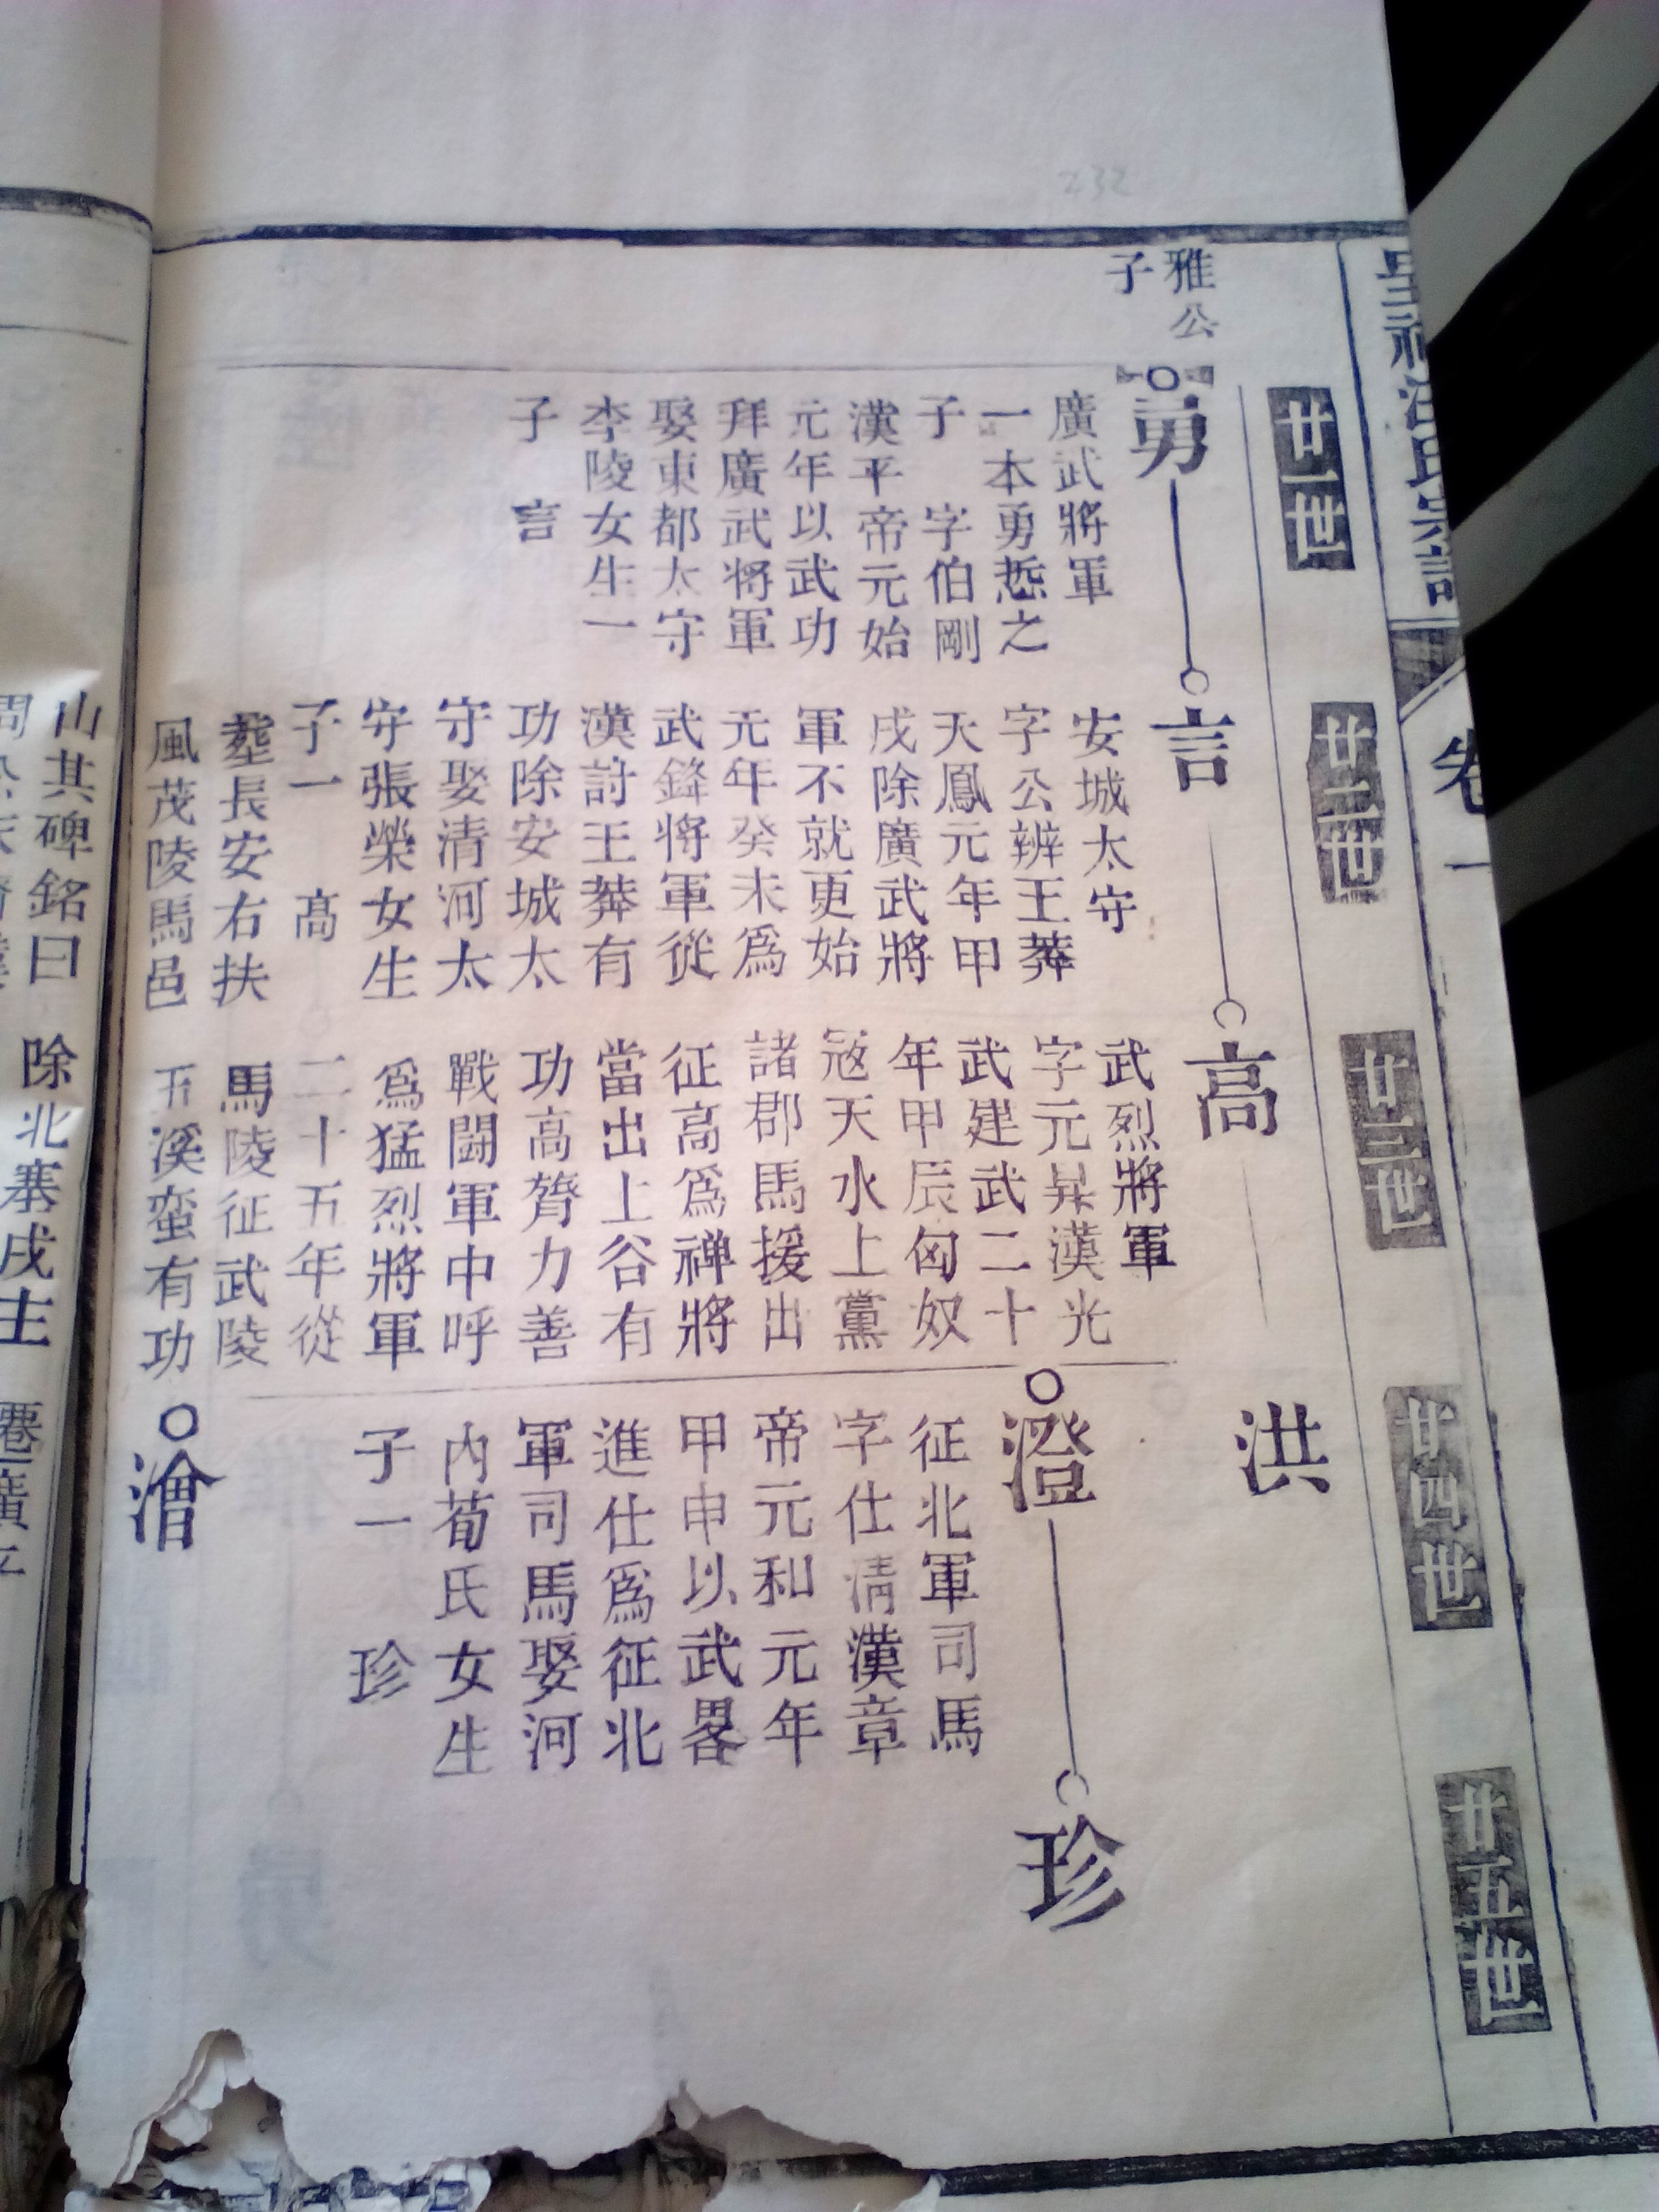 卷一
廿一世
廿二世
廿三世
廿四世
廿五世
雅公
子
勇
廣武將軍
一本勇悊之
子 字伯剛
漢平帝元始
元年以武功
拜廣武將軍
娶東都太守
李陵女生一
子 言
言
安城太守
字公辨王莽
天鳳元年甲
戌除廣武將
軍不就更始
元年癸未爲
武鋒將軍從
漢討王莽有
功除安城太
守娶清河太
守張榮女生
子一 高
塟長安右扶
風茂陵馬邑
高
武烈將軍
字元昇漢光
武建武二十
年甲辰匈奴
宼天水上黨
諸郡馬援出
征高爲禆將
當出上谷有
功高膂力善
戰闘軍中呼
爲猛烈將軍
二十五年從
馬陵征武陵
五溪蛮有功
洪
澄
征北軍司馬
字仕清漢章
帝元和元年
甲申以武畧
進仕爲征北
軍司馬娶河
内荀氏女生
子一 珍
珍
澮
山其碑銘曰
除北塞戍主